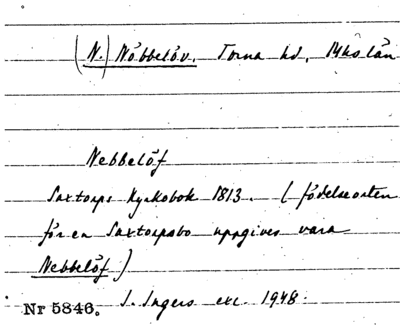 (N.) Nöbbelöv. Torna hd. Mhs län
Nebbelöf
Saxtorps Kyrkobok 1813. (födelseorten
för en Saxtorpsbo uppgives vara
Nebbelöf)
Nr 5846. I. Ingers exc. 1948.